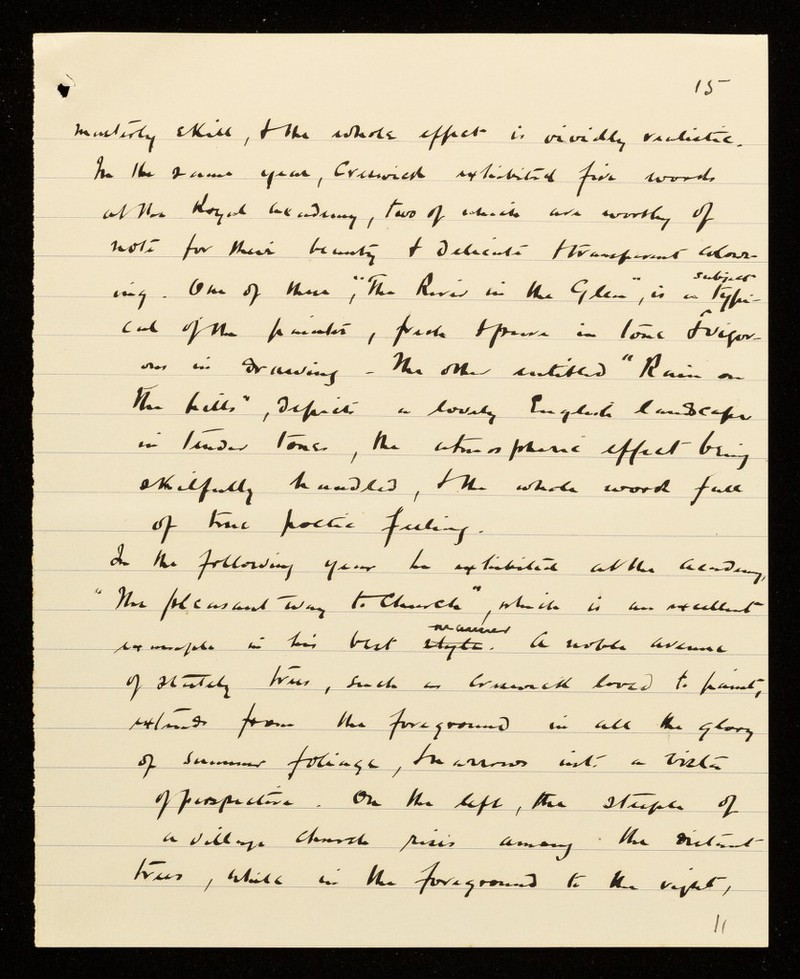 15
masterly skill, & the whole effect is vividly realistic.
In the same year, Creswick exhibited five works
at the Royal Academy, two of which are worthy of
note for their beauty & delicate & transparent colour-
ing. One of these, "The River in the Glen", is a subject typi-
cal of the painter, fresh & pure in tone & vigor-
ous in drawing - The other entitled "Rain on
the hills", depicts a lovely English landscape
in tender tones, the atmospheric effect being
skilfully handled, & the whole work full
of true poetic feeling.
In the following year he exhibited at the Academy,
"The pleasant way to Church", which is an excellent
example in his best style. manner A noble avenue
of stately trees, such as Creswick loved to paint,
extends from the foreground in all the glory
of summer foliage, & narrows into a vista
of perspective. On the left, the steeple of
a village church rises among the distant
trees, while in the foreground to the right,
11